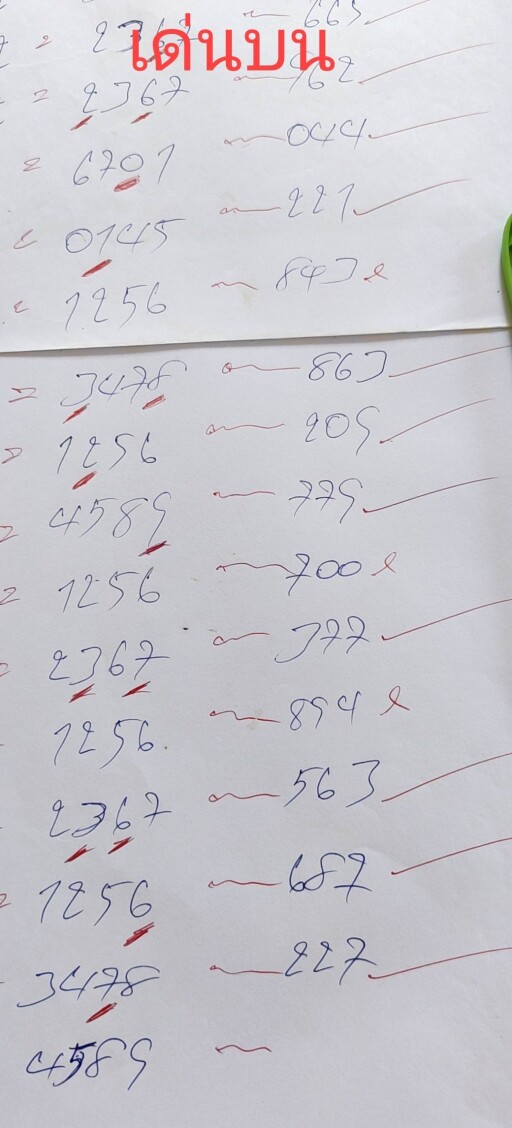 = 23 ~ 665
เด่นบน
= 2367 ~ 962
= 6701 ~ 044
0145 ~ 221
1256 ~ 843 x
= 3478 ~ 863
1256 ~ 209
4589 ~ 779
1256 ~ 700 x
2367 ~ 377
1256 ~ 894 x
2367 ~ 563
1256 ~ 687
3478 ~ 227
4589 ~